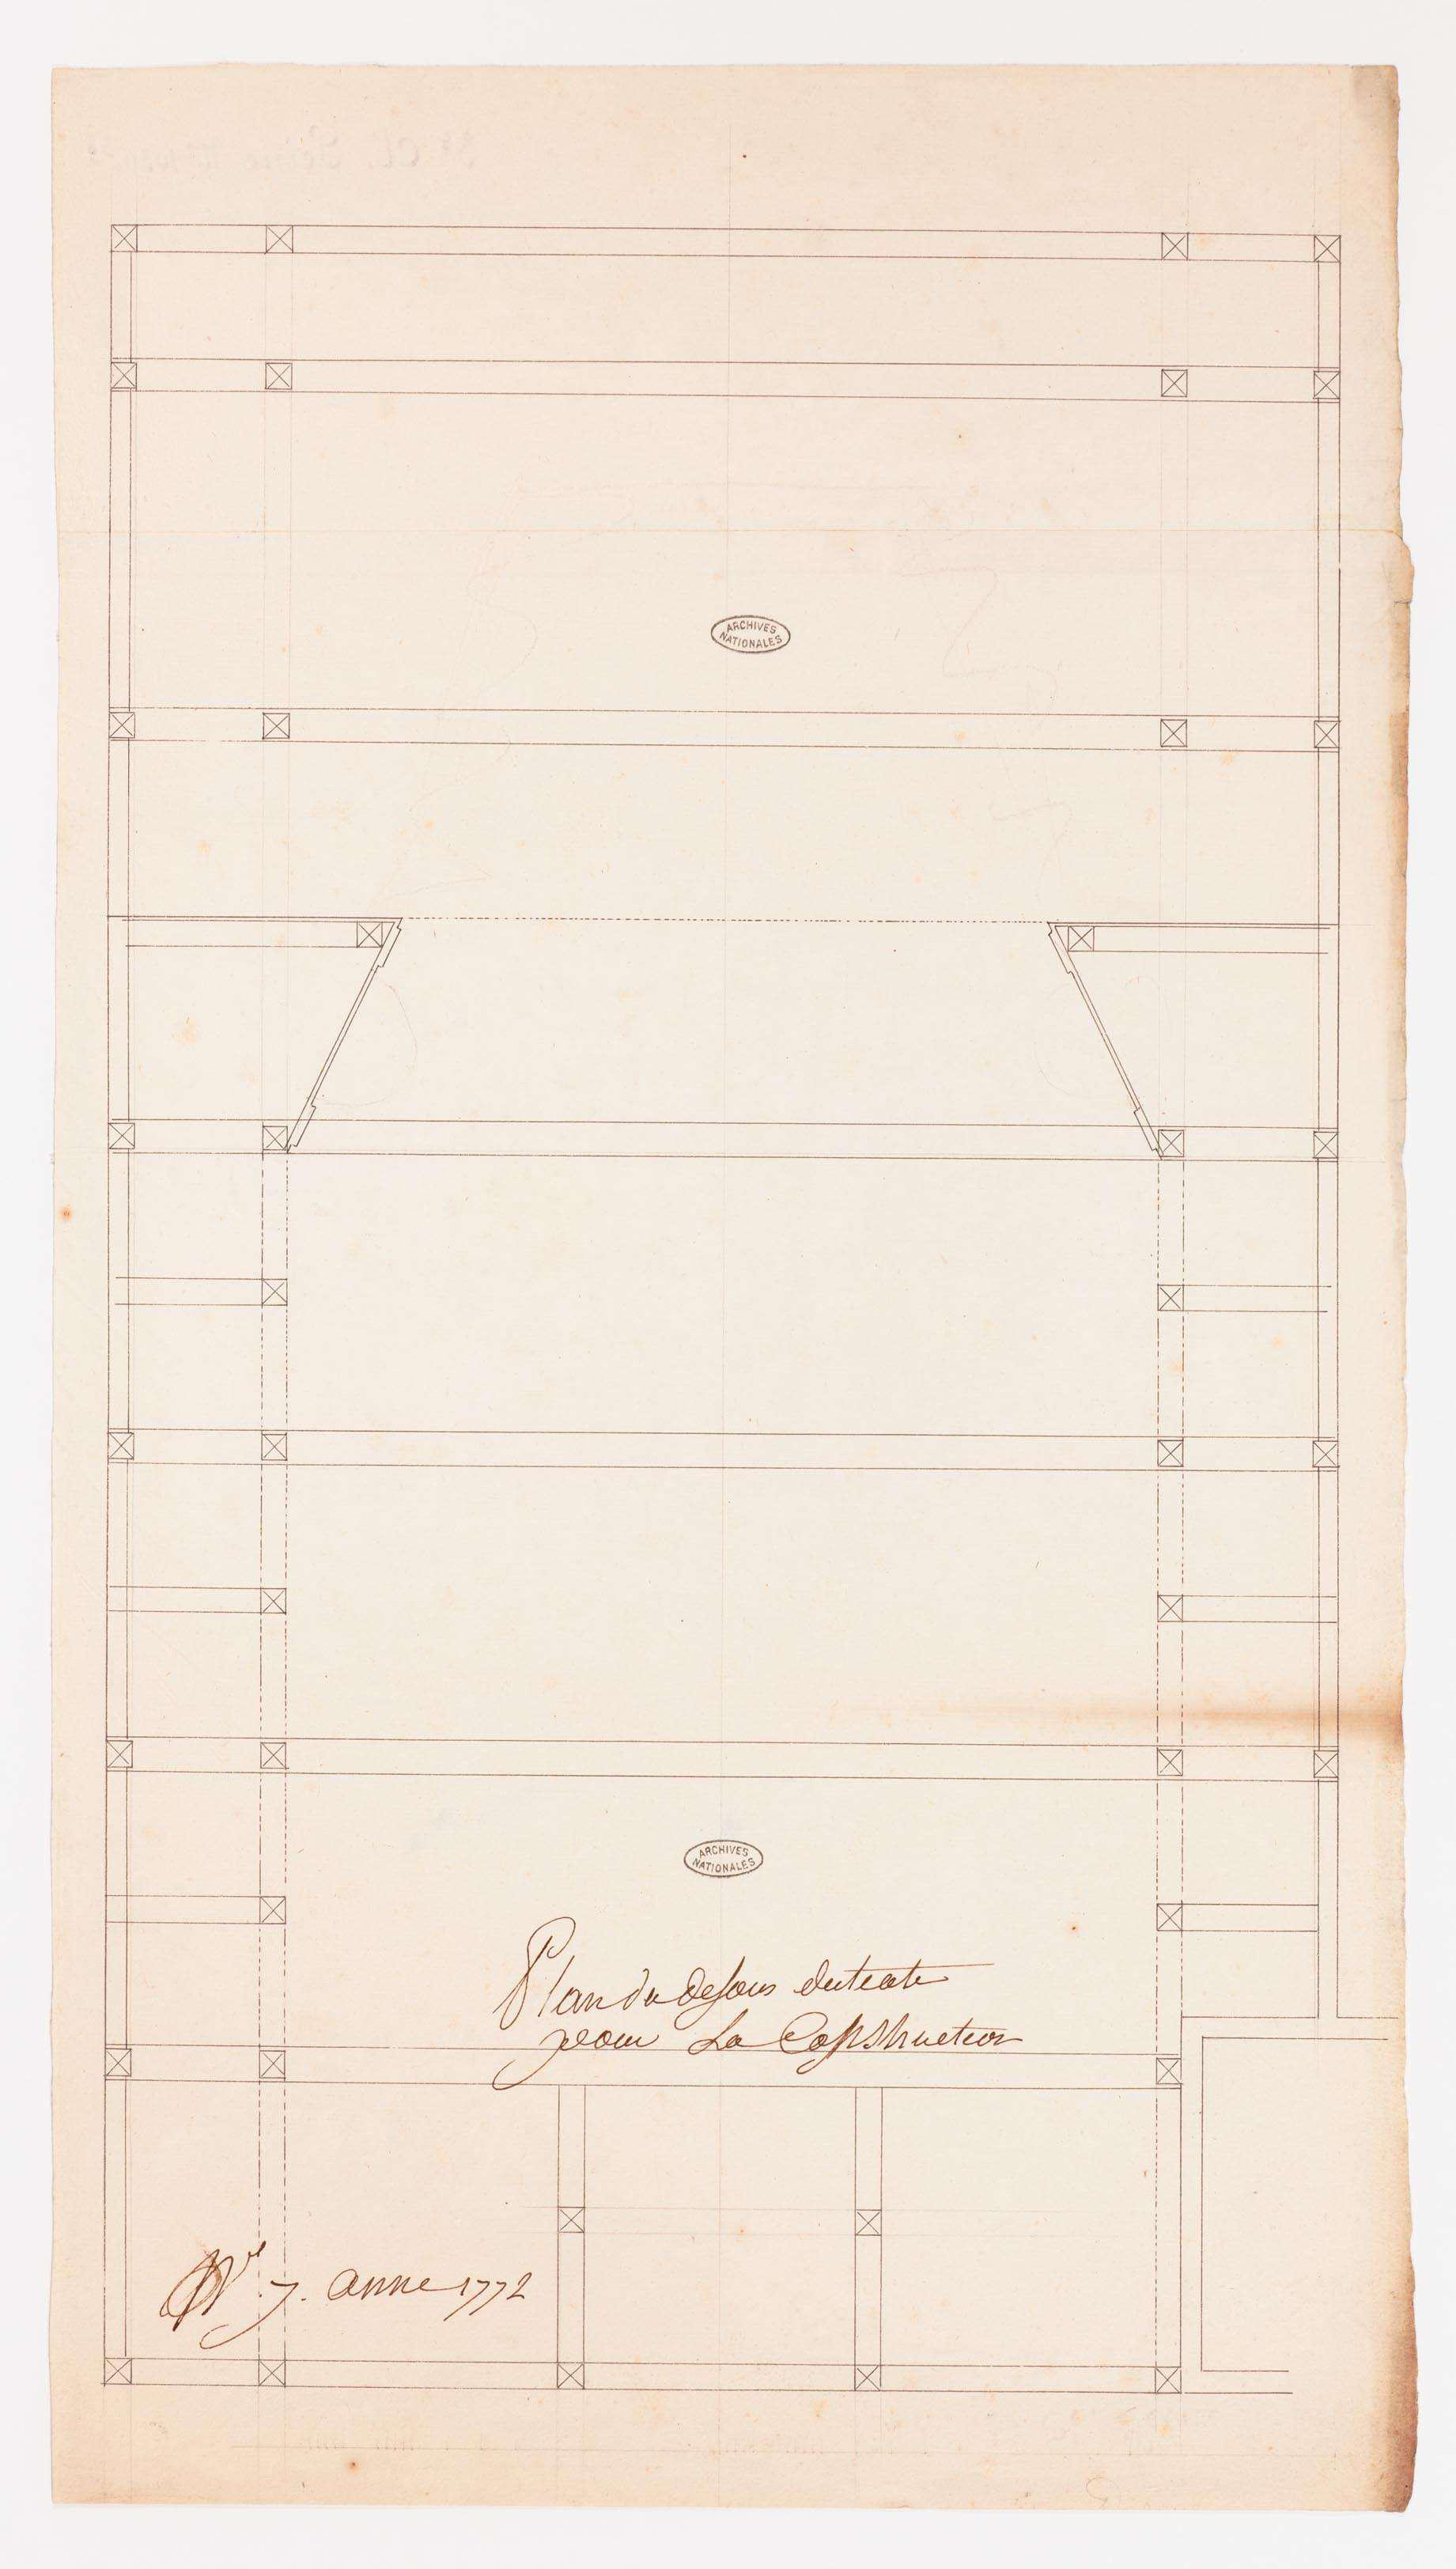 ARCHIVES
NATIONALES
ARCHIVES
NATIONALES
Plan du desous du teatre
pour La Constructeur
7. anne 1772